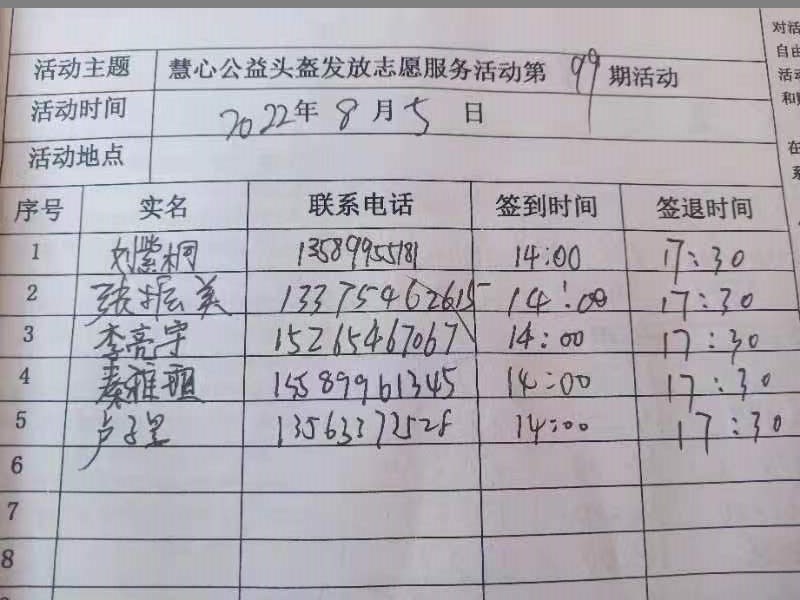 活动主题 慧心公益头盔发放志愿服务活动第99期活动
活动时间 2022年8月5日
活动地点
序号 实名 联系电话 签到时间 签退时间
1 刘紫桐 13589955181 14:00 17:30
2 张振美 13375462615 14:00 17:30
3 李亮守 15265467067 14:00 17:30
4 秦雅 15589961345 14:00 17:30
5 卢子 13563372528 14:00 17:30
6
7
8
对活
自由
活动
在